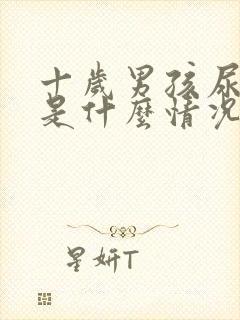 十歲男孩尿
是什麼情況
星妍T